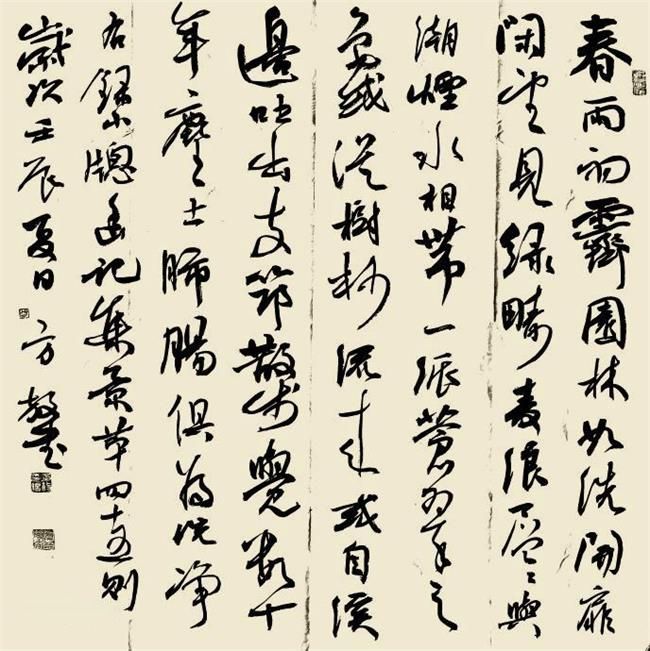 春雨初霽園林如洗開扉
閑望見綠疇麦浪層々與
湖煙水相帶一派蒼翠之
色或從樹杪流来或自溪
邊吐出支筇散步覺數十
年塵土肺腸俱為洗净
右錄小牕幽記集景四十五則
歲次壬辰夏日 方